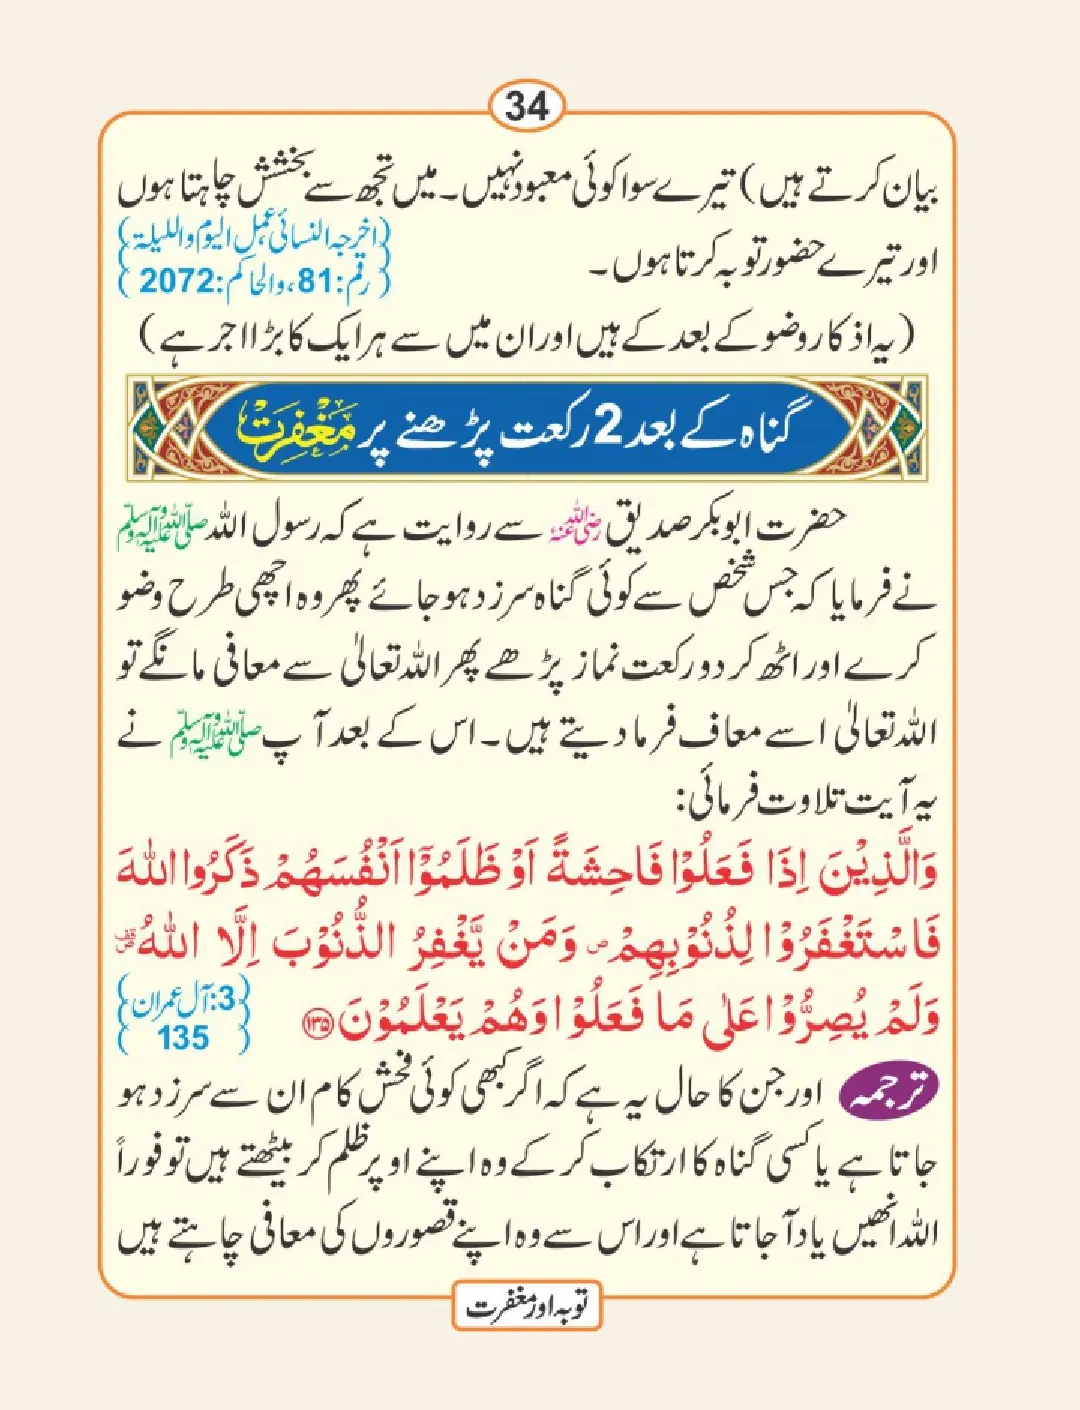 34
بیان کرتے ہیں) تیرے سوا کوئی معبود نہیں۔ میں تجھ سے بخشش چاہتا ہوں
اور تیرے حضور توبہ کرتا ہوں۔
(اخرجہ النسائی عمل الیوم واللیلۃ
رقم:81، والحاکم:2072)
(یہ اذکار وضو کے بعد کے ہیں اور ان میں سے ہر ایک کا بڑا اجر ہے)
گناہ کے بعد 2 رکعت پڑھنے پر مغفرت
حضرت ابوبکر صدیق رضی اللہ عنہ سے روایت ہے کہ رسول اللہ صلی اللہ علیہ وآلہ وسلم
نے فرمایا کہ جس شخص سے کوئی گناہ سرزد ہو جائے پھر وہ اچھی طرح وضو
کرے اور اٹھ کر دو رکعت نماز پڑھے پھر اللہ تعالیٰ سے معافی مانگے تو
اللہ تعالیٰ اسے معاف فرما دیتے ہیں۔ اس کے بعد آپ صلی اللہ علیہ وآلہ وسلم نے
یہ آیت تلاوت فرمائی:
وَالَّذِیْنَ اِذَا فَعَلُوْا فَاحِشَةً اَوْ ظَلَمُوْۤا اَنْفُسَهُمْ ذَكَرُوا اللّٰهَ
فَاسْتَغْفَرُوْا لِذُنُوْبِهِمْ ۪ وَمَنْ یَّغْفِرُ الذُّنُوْبَ اِلَّا اللّٰهُ
وَلَمْ یُصِرُّوْا عَلٰی مَا فَعَلُوْا وَهُمْ یَعْلَمُوْنَ ۝۱۳۵
(3:آل عمران
135)
ترجمہ اور جن کا حال یہ ہے کہ اگر کبھی کوئی فحش کام ان سے سرزد ہو
جاتا ہے یا کسی گناہ کا ارتکاب کر کے وہ اپنے اوپر ظلم کر بیٹھتے ہیں تو فوراً
اللہ انھیں یاد آ جاتا ہے اور اس سے وہ اپنے قصوروں کی معافی چاہتے ہیں
توبہ اور مغفرت